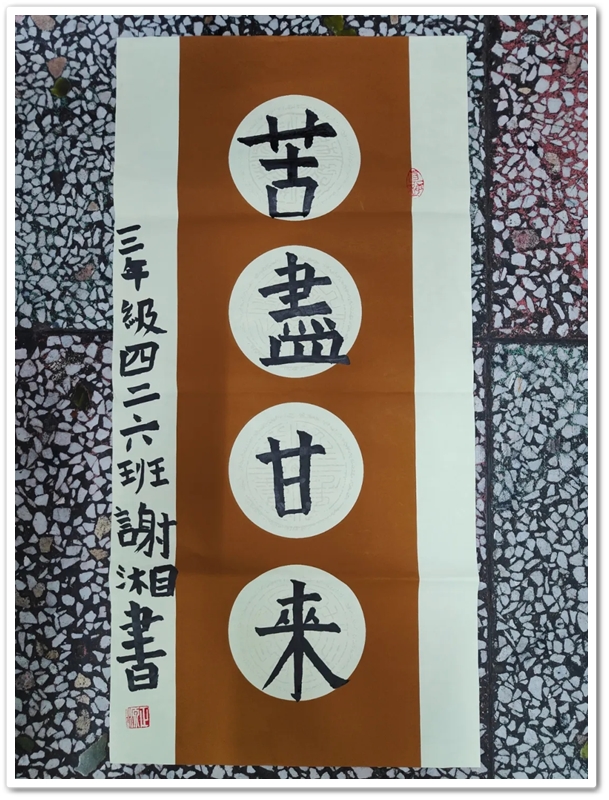 苦盡甘來
三年級四二六班謝湘書